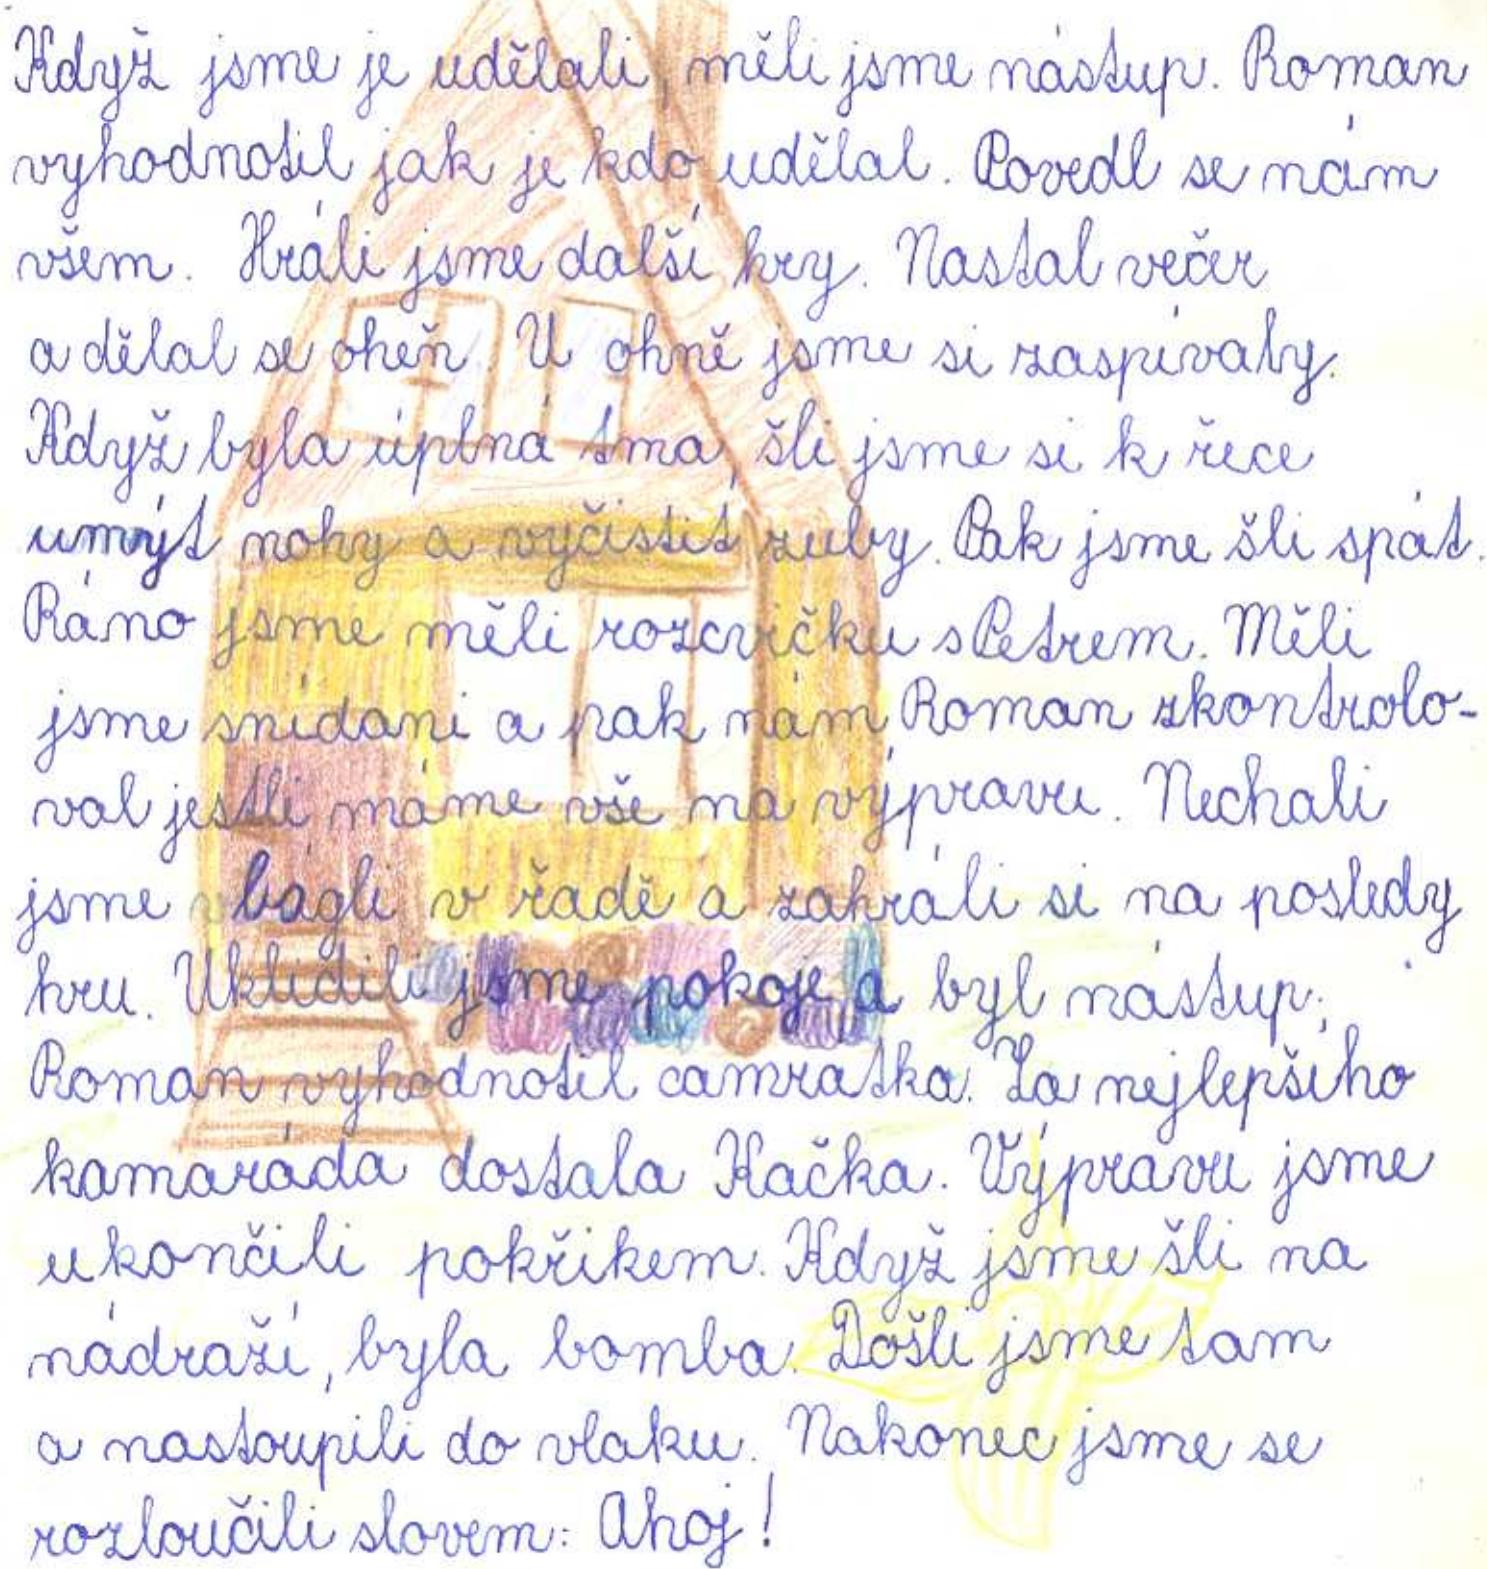 Když jsme je udělali, měli jsme nástup. Roman
vyhodnotil jak je kdo udělal. Povedl se nám
všem. Hráli jsme další hry. Nastal večer
a dělal se oheň. U ohně jsme si zaspívaly.
Když byla úplná tma, šli jsme si k řece
umýt nohy a vyčistit zuby. Pak jsme šli spát.
Ráno jsme měli rozcvičku s Petrem. Měli
jsme snídani a pak nám Roman zkontrolo-
val jestli máme vše na výpravu. Nechali
jsme bágli v řadě a zahráli si na posledy
hru. Uklidili jsme pokoje a byl nástup.
Roman vyhodnotil camratka. Za nejlepšího
kamaráda dostala Kačka. Výpravu jsme
ukončili pokřikem. Když jsme šli na
nádraží, byla bomba. Došli jsme tam
a nastoupili do vlaku. Nakonec jsme se
rozloučili slovem: Ahoj!